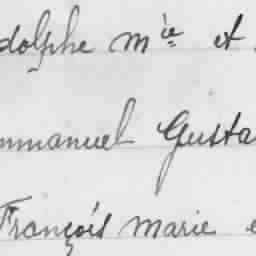 dolphe mie et
mmanuel Gusta
François marie e